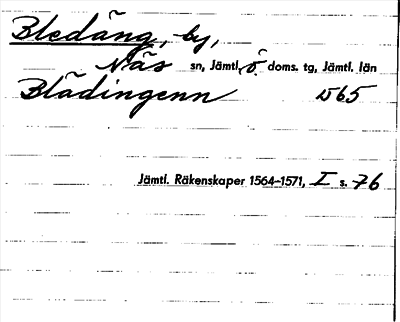 Bledäng, by,
Näs sn, Jämtl. ö. doms. tg, Jämtl. län
Blädingenn 1565
Jämtl. Räkenskaper 1564-1571, I s. 76